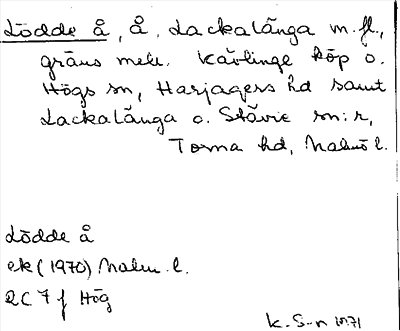 Lödde å, å, Lackalänga m.fl.,
gräns mell. Kävlinge köp o.
Högs sn, Harjagers hd samt
Lackalänga o. Stävie sn:r,
Torna hd, Malmö l.
Lödde å
ek (1970) Malm. l.
2C 7 f Hög
K.S-n 1971